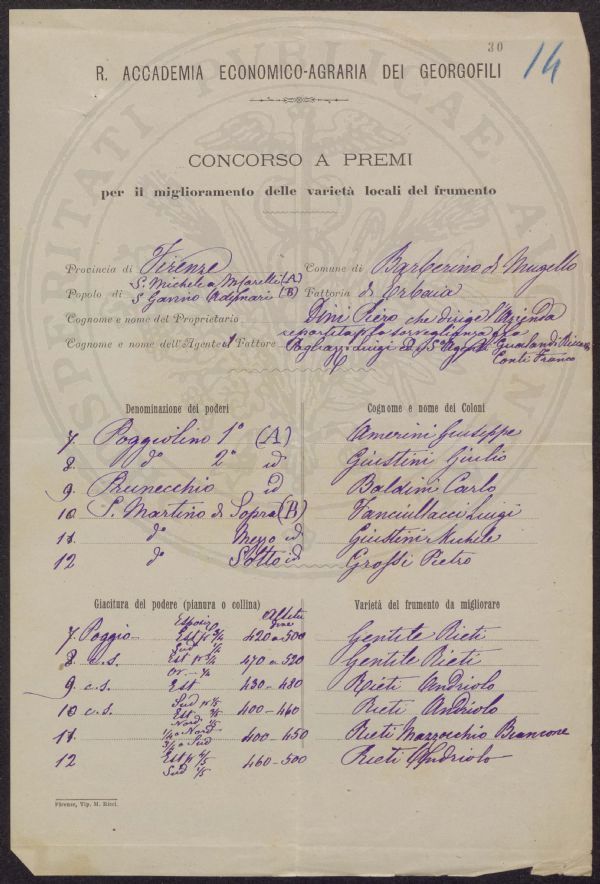 30
14
R. ACCADEMIA ECONOMICO-AGRARIA DEI GEORGOFILI
CONCORSO A PREMI
per il miglioramento delle varietà locali del frumento
Provincia di Firenze Comune di Barberino di Mugello
Popolo di S. Michele a (A) S. Gavino Adimari (B) Fattoria di Erbaia
Cognome e nome del Proprietario Dini Piero che dirige l'Azienda
Cognome e nome dell'Agente o Fattore Pagliazzi Luigi ed Gualandi Conti Franco
Denominazione dei poderi Cognome e nome dei Coloni
7. Poggiolino 1° (A) Amerini Giuseppe
8. d° 2° id Giustini Giulio
9. Prunecchio id Baldini Carlo
10 S. Martino di Sopra (B) Fanciullacci Luigi
11 d° Mezzo id Giustini Michele
12 d° Sotto id Grossi Pietro
Giacitura del podere (pianura o collina) Varietà del frumento da migliorare
7. Poggio 420 a 500 Gentile Rieti
8. c.s. 470 a 520 Gentile Rieti
9. c.s. Est 430 - 480 Rieti Andriolo
10 c.s. 400 - 460 Rieti Andriolo
11 400 - 450 Rieti Mazzocchio Biancone
12 460 - 500 Rieti Andriolo
Firenze, Tip. M. Ricci.